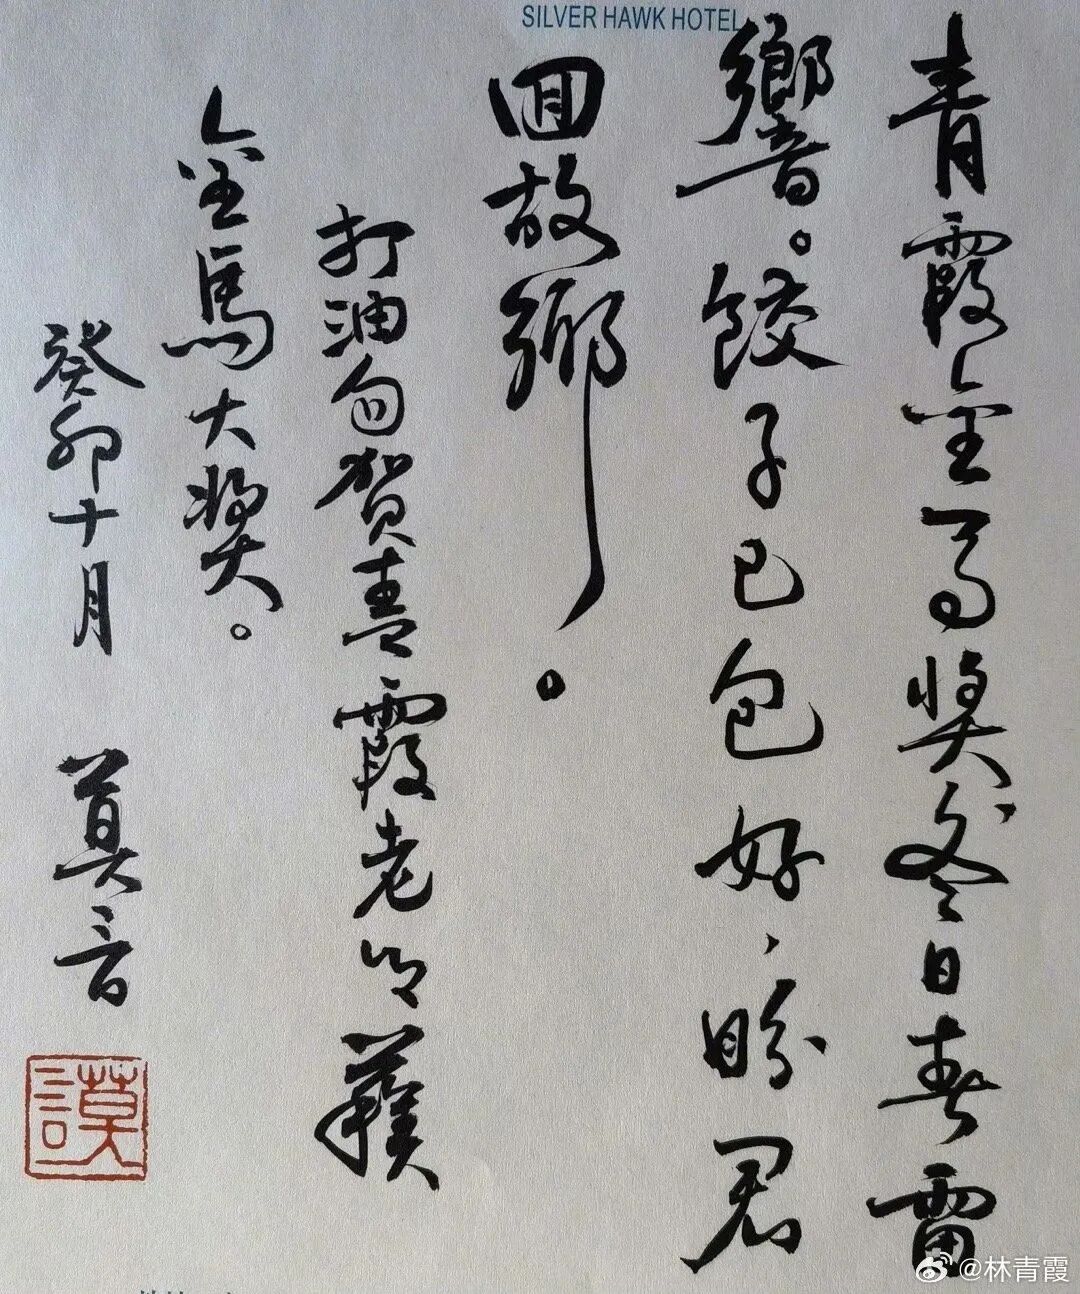 SILVER HAWK HOTEL
青霞金馬獎冬日春雷
響。餃子已包好,盼君
回故鄉。
打油句賀青霞老師獲
金馬大獎。
癸卯十月 莫言
謨
@林青霞